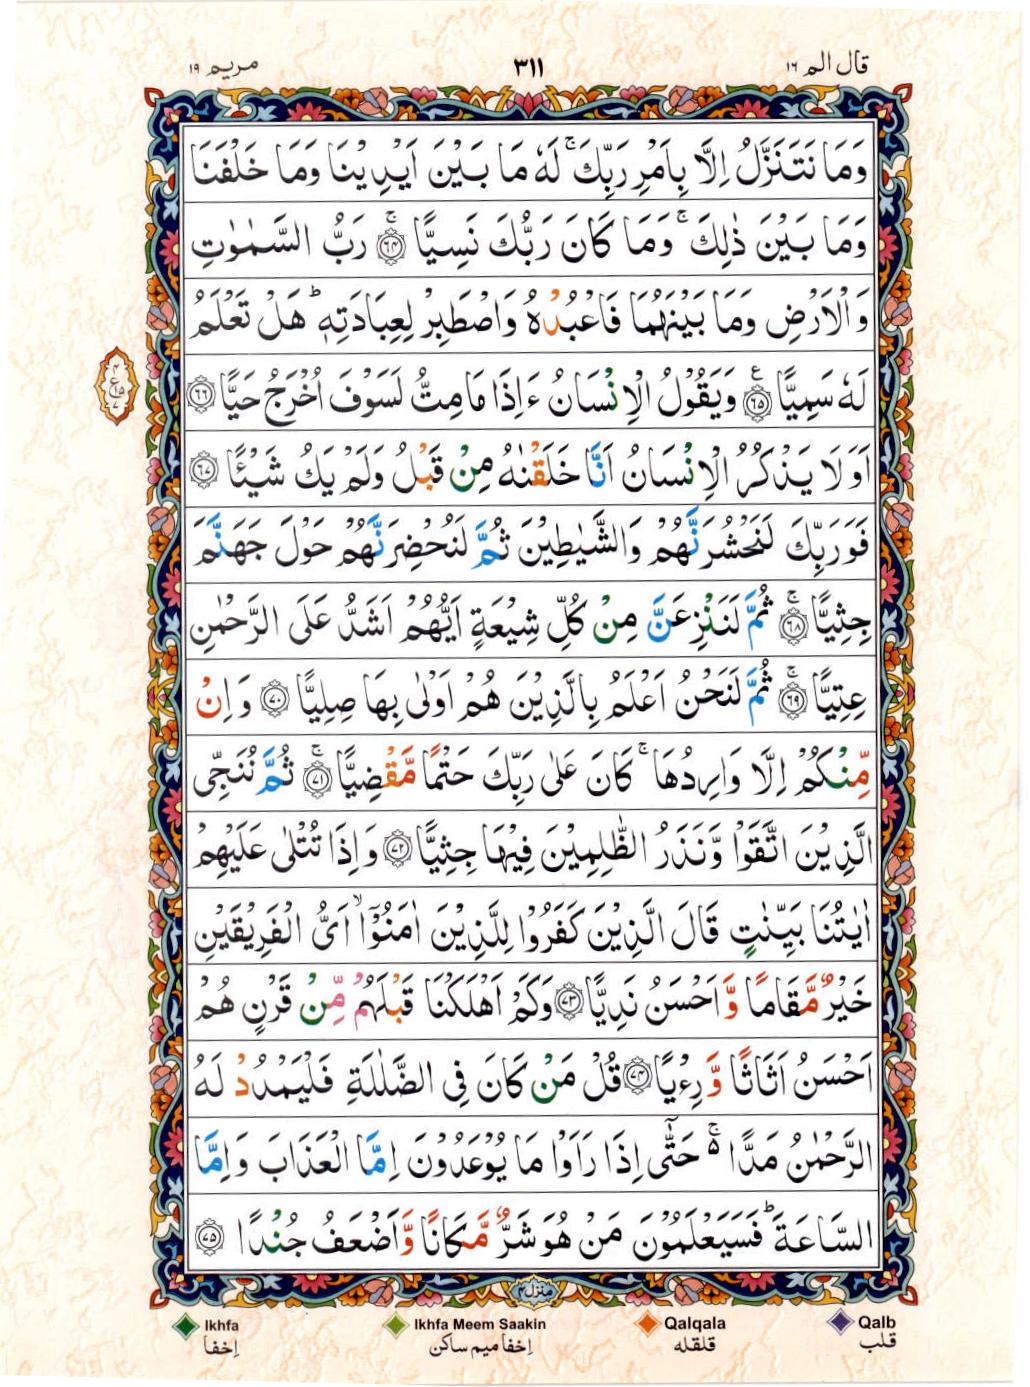 قال الم ١٦
٣١١
مريم ١٩
وَمَا نَتَنَزَّلُ اِلَّا بِاَمْرِ رَبِّكَ ۚ لَهٗ مَا بَيْنَ اَيْدِيْنَا وَمَا خَلْفَنَا
وَمَا بَيْنَ ذٰلِكَ ۚ وَمَا كَانَ رَبُّكَ نَسِيًّا ۚ ﴿٦٤﴾ رَبُّ السَّمٰوٰتِ
وَالْاَرْضِ وَمَا بَيْنَهُمَا فَاعْبُدْهُ وَاصْطَبِرْ لِعِبَادَتِهٖ ؕ هَلْ تَعْلَمُ
لَهٗ سَمِيًّا ﴿٦٥﴾ ع وَيَقُوْلُ الْاِنْسَانُ ءَاِذَا مَا مِتُّ لَسَوْفَ اُخْرَجُ حَيًّا ﴿٦٦﴾
اَوَلَا يَذْكُرُ الْاِنْسَانُ اَنَّا خَلَقْنٰهُ مِنْ قَبْلُ وَلَمْ يَكُ شَيْـًٔا ﴿٦٧﴾
فَوَرَبِّكَ لَنَحْشُرَنَّهُمْ وَالشَّيٰطِيْنَ ثُمَّ لَنُحْضِرَنَّهُمْ حَوْلَ جَهَنَّمَ
جِثِيًّا ۚ ﴿٦٨﴾ ثُمَّ لَنَنْزِعَنَّ مِنْ كُلِّ شِيْعَةٍ اَيُّهُمْ اَشَدُّ عَلَى الرَّحْمٰنِ
عِتِيًّا ۚ ﴿٦٩﴾ ثُمَّ لَنَحْنُ اَعْلَمُ بِالَّذِيْنَ هُمْ اَوْلٰى بِهَا صِلِيًّا ﴿٧٠﴾ وَاِنْ
مِّنْكُمْ اِلَّا وَارِدُهَا ۚ كَانَ عَلٰى رَبِّكَ حَتْمًا مَّقْضِيًّا ۚ ﴿٧١﴾ ثُمَّ نُنَجِّى
الَّذِيْنَ اتَّقَوْا وَّنَذَرُ الظّٰلِمِيْنَ فِيْهَا جِثِيًّا ﴿٧٢﴾ وَاِذَا تُتْلٰى عَلَيْهِمْ
اٰيٰتُنَا بَيِّنٰتٍ قَالَ الَّذِيْنَ كَفَرُوْا لِلَّذِيْنَ اٰمَنُوْٓا ۙ اَىُّ الْفَرِيْقَيْنِ
خَيْرٌ مَّقَامًا وَّاَحْسَنُ نَدِيًّا ﴿٧٣﴾ وَكَمْ اَهْلَكْنَا قَبْلَهُمْ مِّنْ قَرْنٍ هُمْ
اَحْسَنُ اَثَاثًا وَّرِءْيًا ﴿٧٤﴾ قُلْ مَنْ كَانَ فِى الضَّلٰلَةِ فَلْيَمْدُدْ لَهُ
الرَّحْمٰنُ مَدًّا ۚ۬ حَتّٰٓى اِذَا رَاَوْا مَا يُوْعَدُوْنَ اِمَّا الْعَذَابَ وَاِمَّا
السَّاعَةَ ؕ فَسَيَعْلَمُوْنَ مَنْ هُوَ شَرٌّ مَّكَانًا وَّاَضْعَفُ جُنْدًا ﴿٧٥﴾
منزل ٤
Ikhfa
Ikhfa Meem Saakin
Qalqala
Qalb
اِخفا
اِخفا میم ساکن
قلقله
قلب